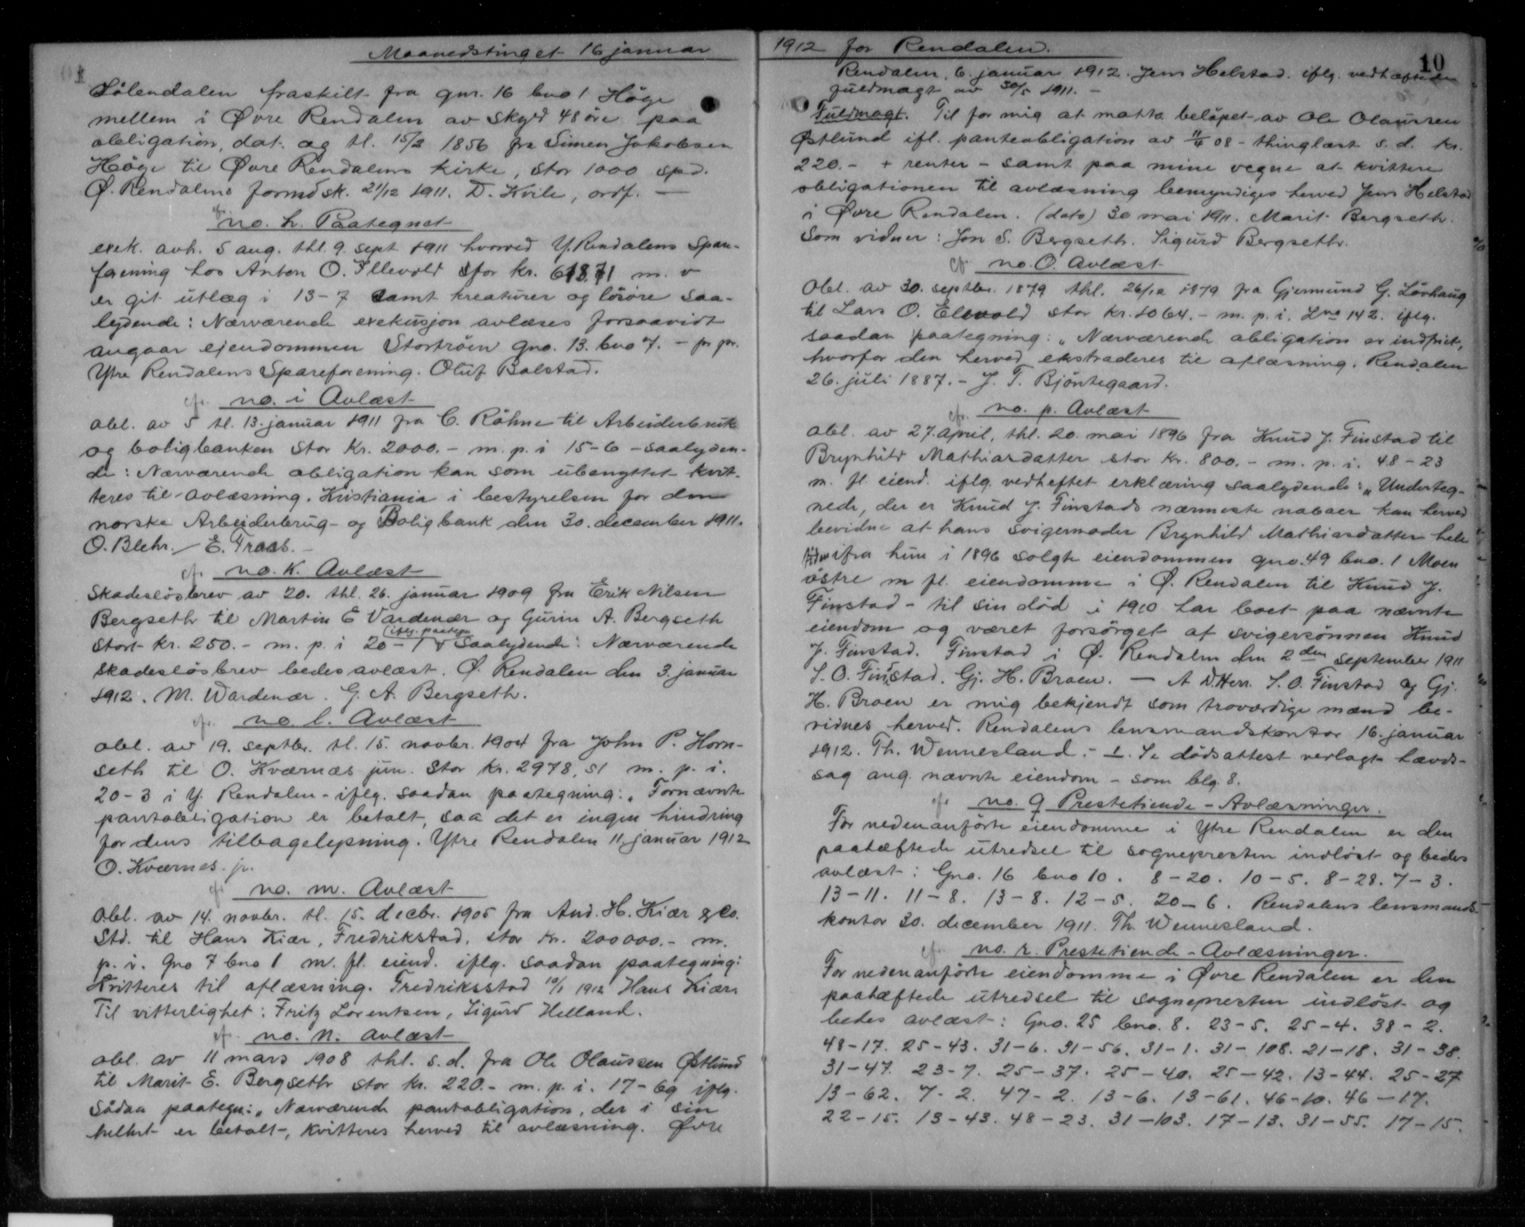 Maanedstinget 16 januar
Sölendalen fraskilt fra gnr. 16 bno 1 Höge
mellem i Øvre Rendalen av skyld 48 öre paa
obligation, dat. og tl. 15/2 1856 fra Simen Jakobsen
Höge til Øvre Rendalens kirke, stor 1000 spd.
Ø. Rendalens formdsk. 21/12 1911. D. Kvile, ordf. —
cfr. no. h. Paategnet
exek. avh. 5 aug. thl. 9. sept 1911 hvorved Y. Rendalens Spare-
forening hos Anton O. Illevold for kr. m. v
er git utlæg i 13-7 samt kreaturer og lösöre saa-
lydende: Nærværende exekusjon avlæses forsaavidt
angaar ejendommen Stortröen gno. 13. bno 7. - pr pr.
Ytre Rendalens Spareforening. Oluf Bolstad.
cfr. no. i Avlæst
obl. av 5 tl. 13. januar 1911 fra C. Röhne til Arbeiderbruk
og boligbanken stor kr. 2000.- m. p. i 15-6 - saalyden-
de: Nærværende obligation kan som ubenyttet kvit-
teres til avlæsning. Kristiania i bestyrelsen for den
norske Arbejderbrug- og Boligbank den 30. december 1911.
O. Blehr. / E. Traas. -
cfr. no. k. Avlæst
Skadeslösbrev av 20. thl. 26. januar 1909 fra Erik Nilsen
Bergseth til Martin E Vardenær og Gurin A. Bergseth
stort kr. 250.- m. p. i 20-1 iflg. paategn Saalydende: Nærværende
skadeslösbrev bedes avlæst. Ø. Rendalen den 3. januar
1912. M. Wardenær. G. A. Bergseth.
cfr. no l. Avlæst
obl. av 19. septbr. tl. 15. novbr. 1904 fra John P. Horn-
seth til O. Kværnæs jun. stor kr. 2978,51 m. p. i.
20-3 i Y. Rendalen - iflg. saadan paategning: „Fornævnte
pantobligation er betalt, saa det er ingen hindring
for dens tilbagelysning. Ytre Rendalen 11 januar 1912
O. Kværnes. jr.
cfr. no. m. Avlæst
Obl. av 14. novbr. tl. 15. decbr. 1905 fra And. H. Kiær & Co.
Std. til Hans Kiær, Fredrikstad, stor kr. 200000.- m.
p. i. gno 7 bno 1 m. fl. eiend. iflg. saadan paategning:
Kvitteres til aflæsning. Fredriksstad 10/1 1912 Hans Kiær.
Til vitterlighet: Fritz Lorentsen, Sigurd Helland.
cfr. no. n. avlæst
obl. av 11 mars 1908 thl. s.d. fra Ole Olaussen Østlund
til Marit E. Bergseth stor kr. 220.- m. p. i. 17-69 iflg.
sådan paategn: „Nærværende pantobligation, der i sin
helhet er betalt, kvitteres herved til avlæsning. Øvre
1912 for Rendalen.
10
Rendalen, 6. januar 1912. Jens Helstad. iflg. vedhæftede
fuldmagt av 30/5 1911. -
Fuldmagt. Til for mig at motta belöpet av Ole Olaussen
Østlund ifl. panteobligation av 11/ 08 - thinglæst s. d. kr.
220.- + renter - samt paa mine vegne at kvittere
obligationen til avlæsning bemyndiges herved Jens Helstad
i Øvre Rendalen. (dato) 30 mai 1911. Marit Bergseth.
Som vidner: Jon S. Bergseth. Sigurd Bergseth.
cfr. no. O. avlæst
Obl. av 30. septbr. 1879 thl. 26/12 1879 fra Gjermund G. Lövhaug
til Lars O. Elevold stor kr. 1064.- m. p. i. Lno 142. iflg.
saadan paategning: „Nærværende obligation er indfriet,
hvorfor den herved ekstraderes til aflæsning. Rendalen
26. juli 1887. - J. T. Bjöntegaard.
cfr. no. p. Avlæst
Obl. av 27. april, thl. 20. mai 1896 fra Knud J. Finstad til
Brynhild Mathiasdatter stor kr. 800.- m. p. i. 48-23
m. fl. eiend. iflg. vedheftet erklæring saalydende: „Underteg-
nede, der er Knud J. Finstads nærmeste naboer kan herved
bevidne at hans svigermoder Brynhild Mathiasdatter hele
tiden ifra hun i 1896 solgte eiendommen gno. 49 bno. 1 Moen
östre m fl. eiendomme i Ø. Rendalen til Knud J.
Finstad - til sin död i 1910 har boet paa nævnte
eiendom og været forsörget af svigersönnen Knud
J. Finstad. Finstad i Ø. Rendalen den 2den september 1911
S. O. Finstad. Gj. H. Broen. — At D'Herr. S. O. Finstad og Gj.
H. Broen er mig bekjendt som troværdige mænd be-
vidnes herved. Rendalens lensmandskontor 16. januar
1912. Th. Wennesland. - Se dödsattest verlagt hævds-
sag ang. nævnte eiendom - som blg. 8.
cfr. no. q Prestetiende - Avlæsninger.
For nedenanförte eiendomme i Ytre Rendalen er den
paahæftede utredsel til sognepresten indlöst og bedes
avlæst: Gno. 16 bno 10. 8-20. 10-5. 8-28. 7-3.
13-11. 11-8. 13-8. 12-5. 20-6. Rendalens lensmands
kontor 30. december 1911. Th. Wennesland.
cfr. no. r. Prestetiende - Avlæsninger.
For nedenanförte eiendomme i Øvre Rendalen er den
paahæftede utredsel til sognepresten indlöst og
bedes avlæst: Gno. 25 bno. 8. 23-5. 25-4. 38-2.
48-17. 25-43. 31-6. 31-56. 31-1. 31-108. 21-18. 31-38.
31-47. 23-7. 25-37. 25-40. 25-42. 13-44. 25-27
13-62. 7-2. 47-2. 13-6. 13-61. 46-10. 46-17.
22-15. 13-43. 48-23. 31-103. 17-13. 31-55. 17-15.